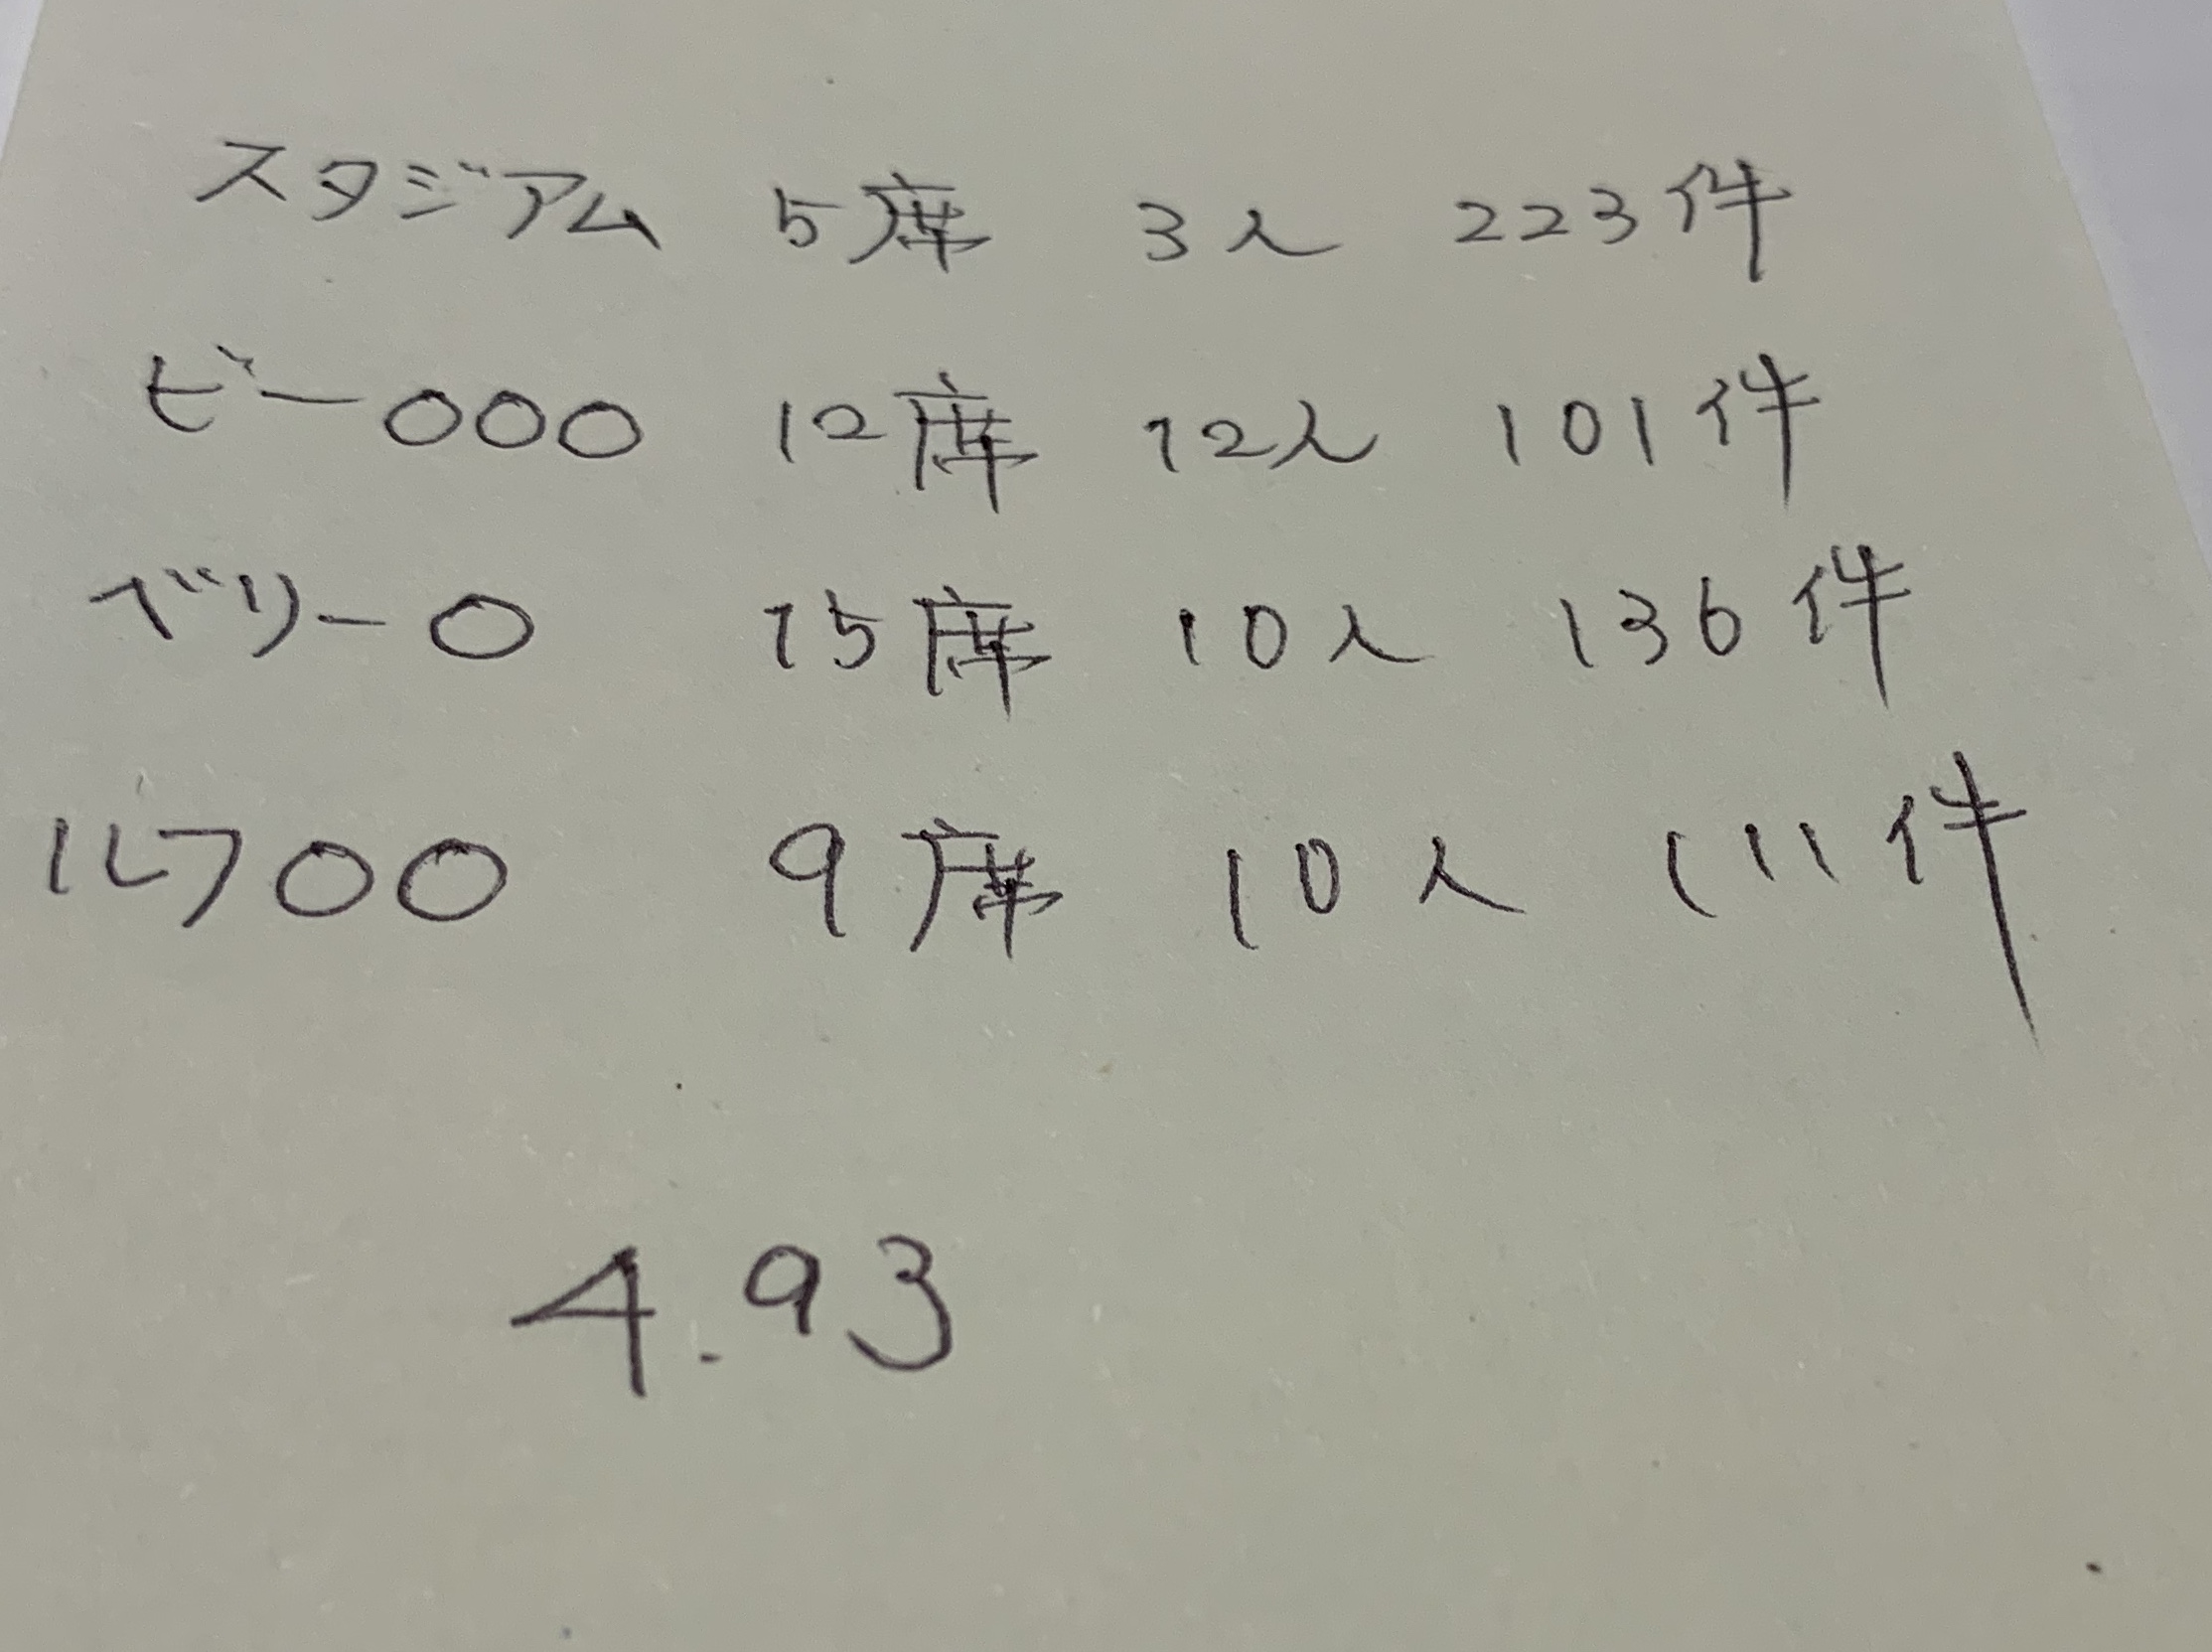 スタジアム 5席 3人 223件
ビー○○○ 12席 12人 101件
ベリー○ 15席 10人 136件
ルフ○○ 9席 10人 111件
4.93